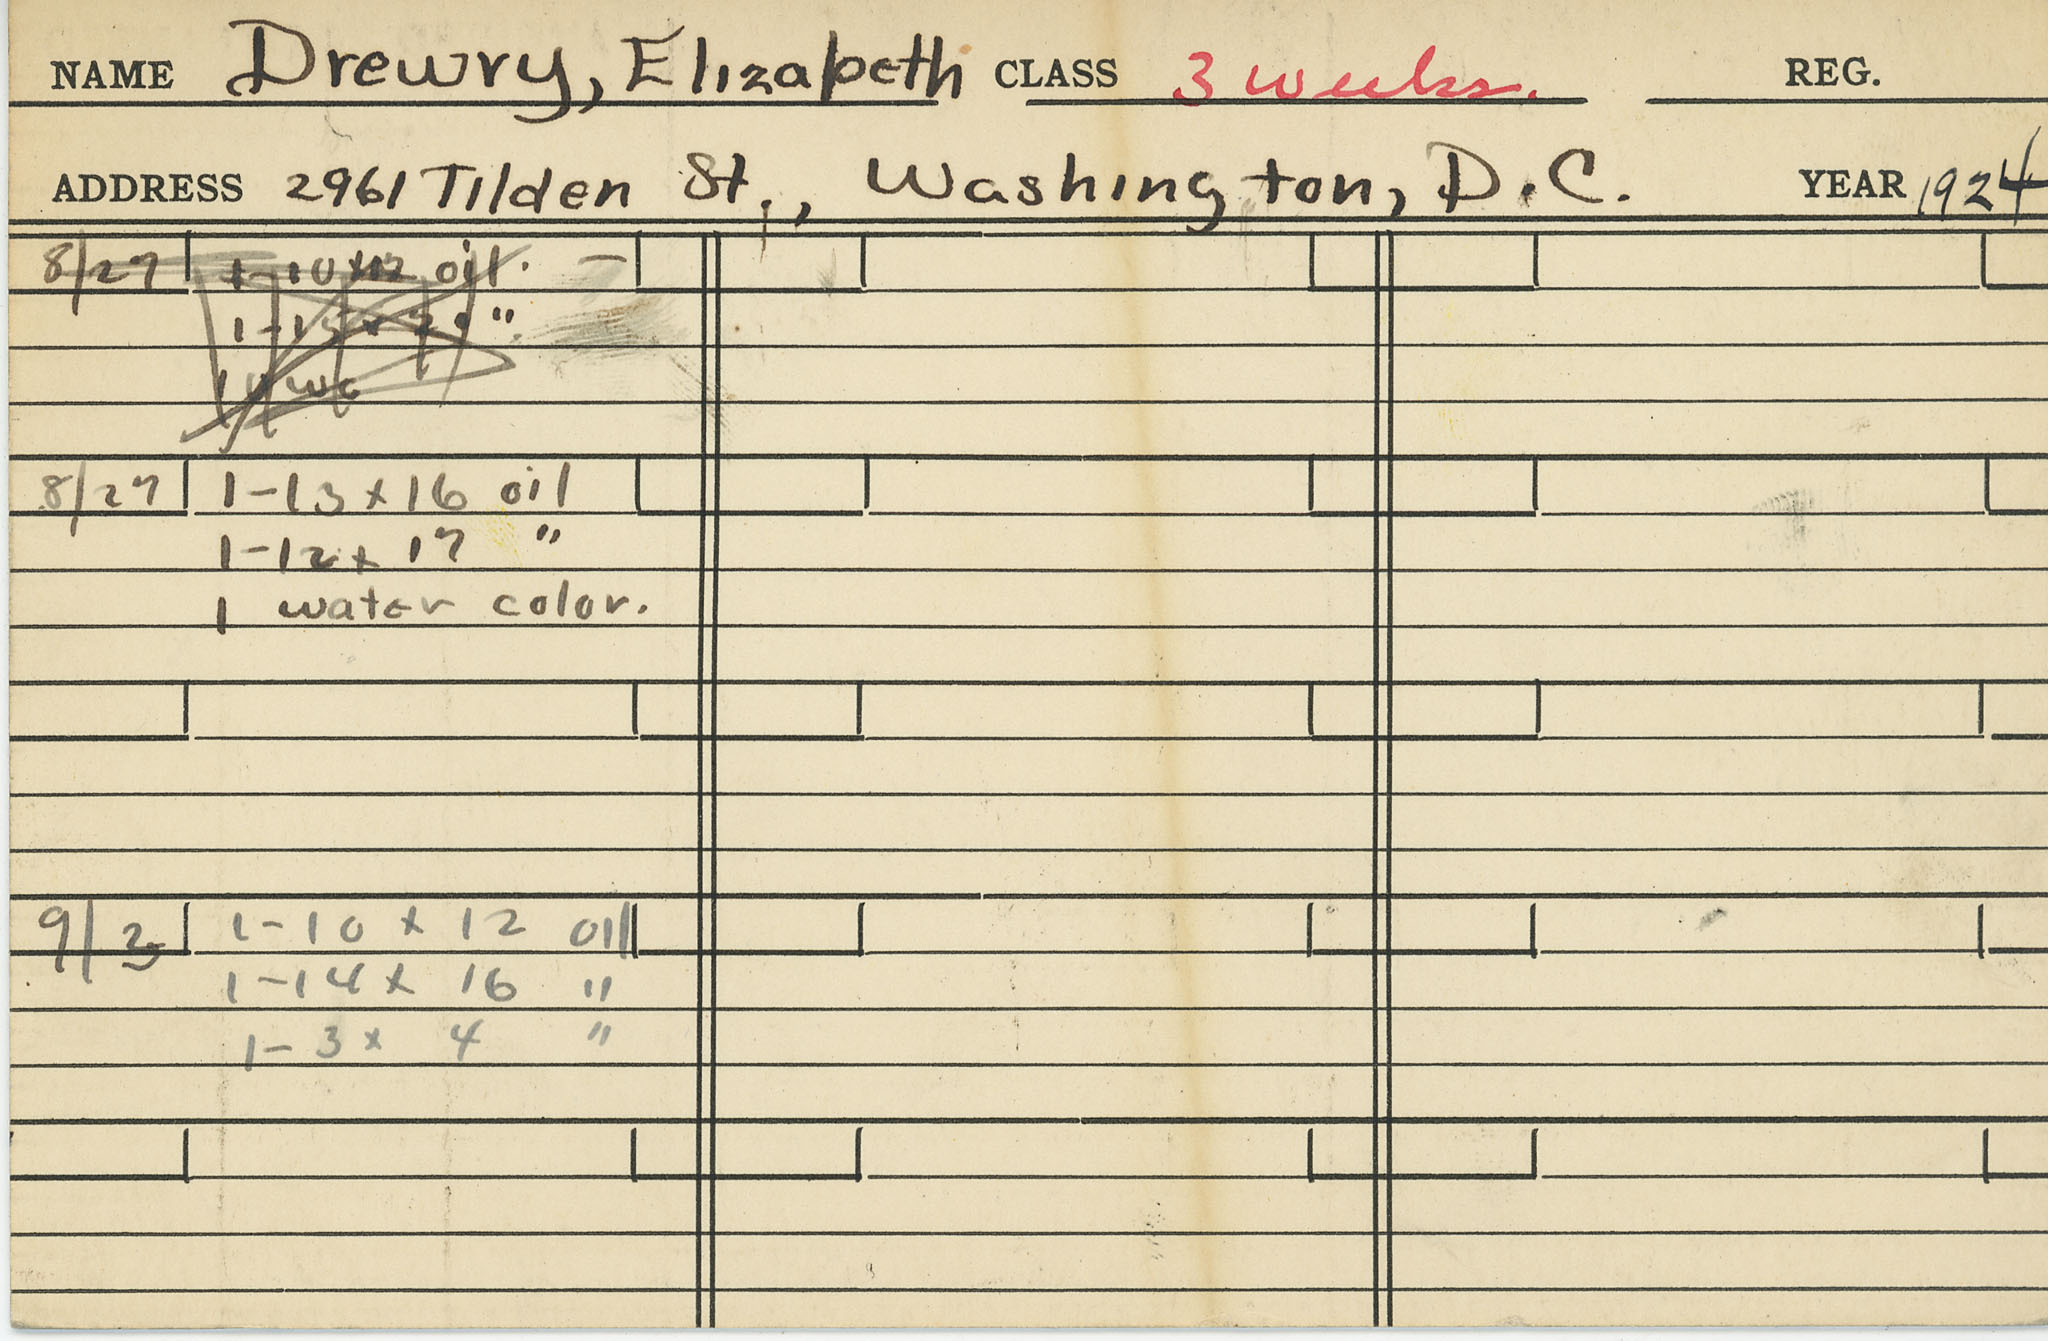 NAME Drewry, Elizabeth CLASS 3 weeks. REG.
ADDRESS 2961 Tilden St., Washington, D.C. YEAR 1924
8/27 1-10x12 oil. —
1-15 x "
1 wc
8/27 1-13 x 16 oil
1-12 x 17 "
1 water color.
9/3 1-10 x 12 oil
1-14 x 16 "
1- 3 x 4 "